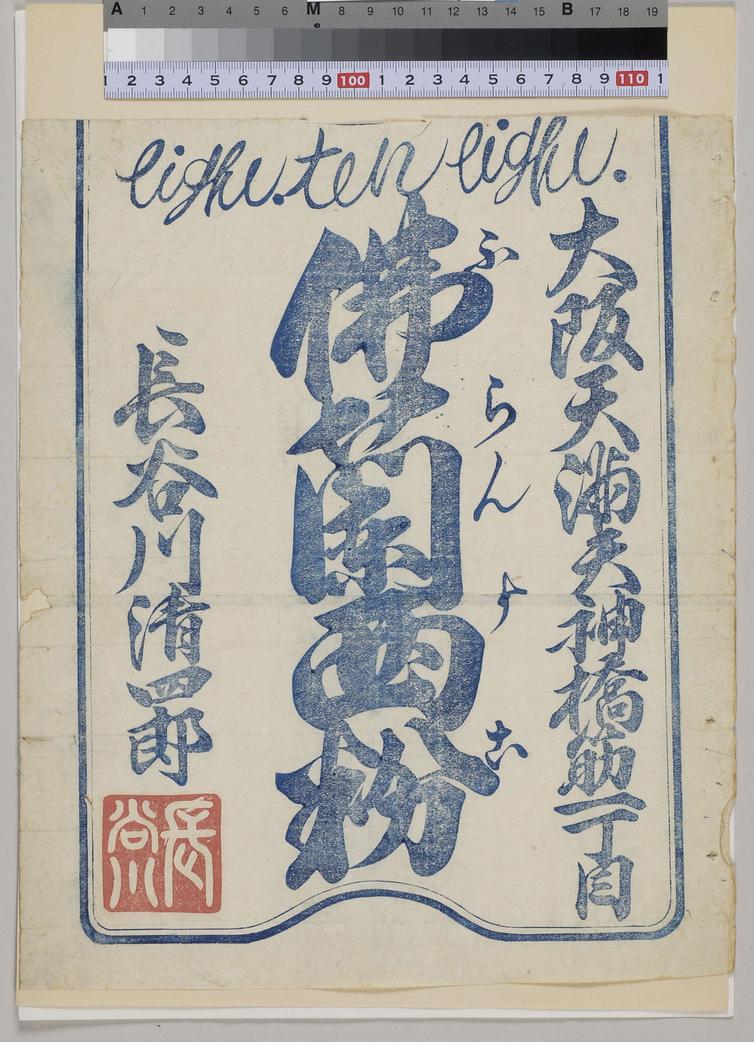 A 1 2 3 4 5 6 M 8 9 10 11 12 13 14 15 B 17 18 19
1 2 3 4 5 6 7 8 9 100 1 2 3 4 5 6 7 8 9 110 1
ten
大阪天満天神橋筋一丁目
ふらんすこ
佛蘭西粉
長谷川清四郎
長谷川